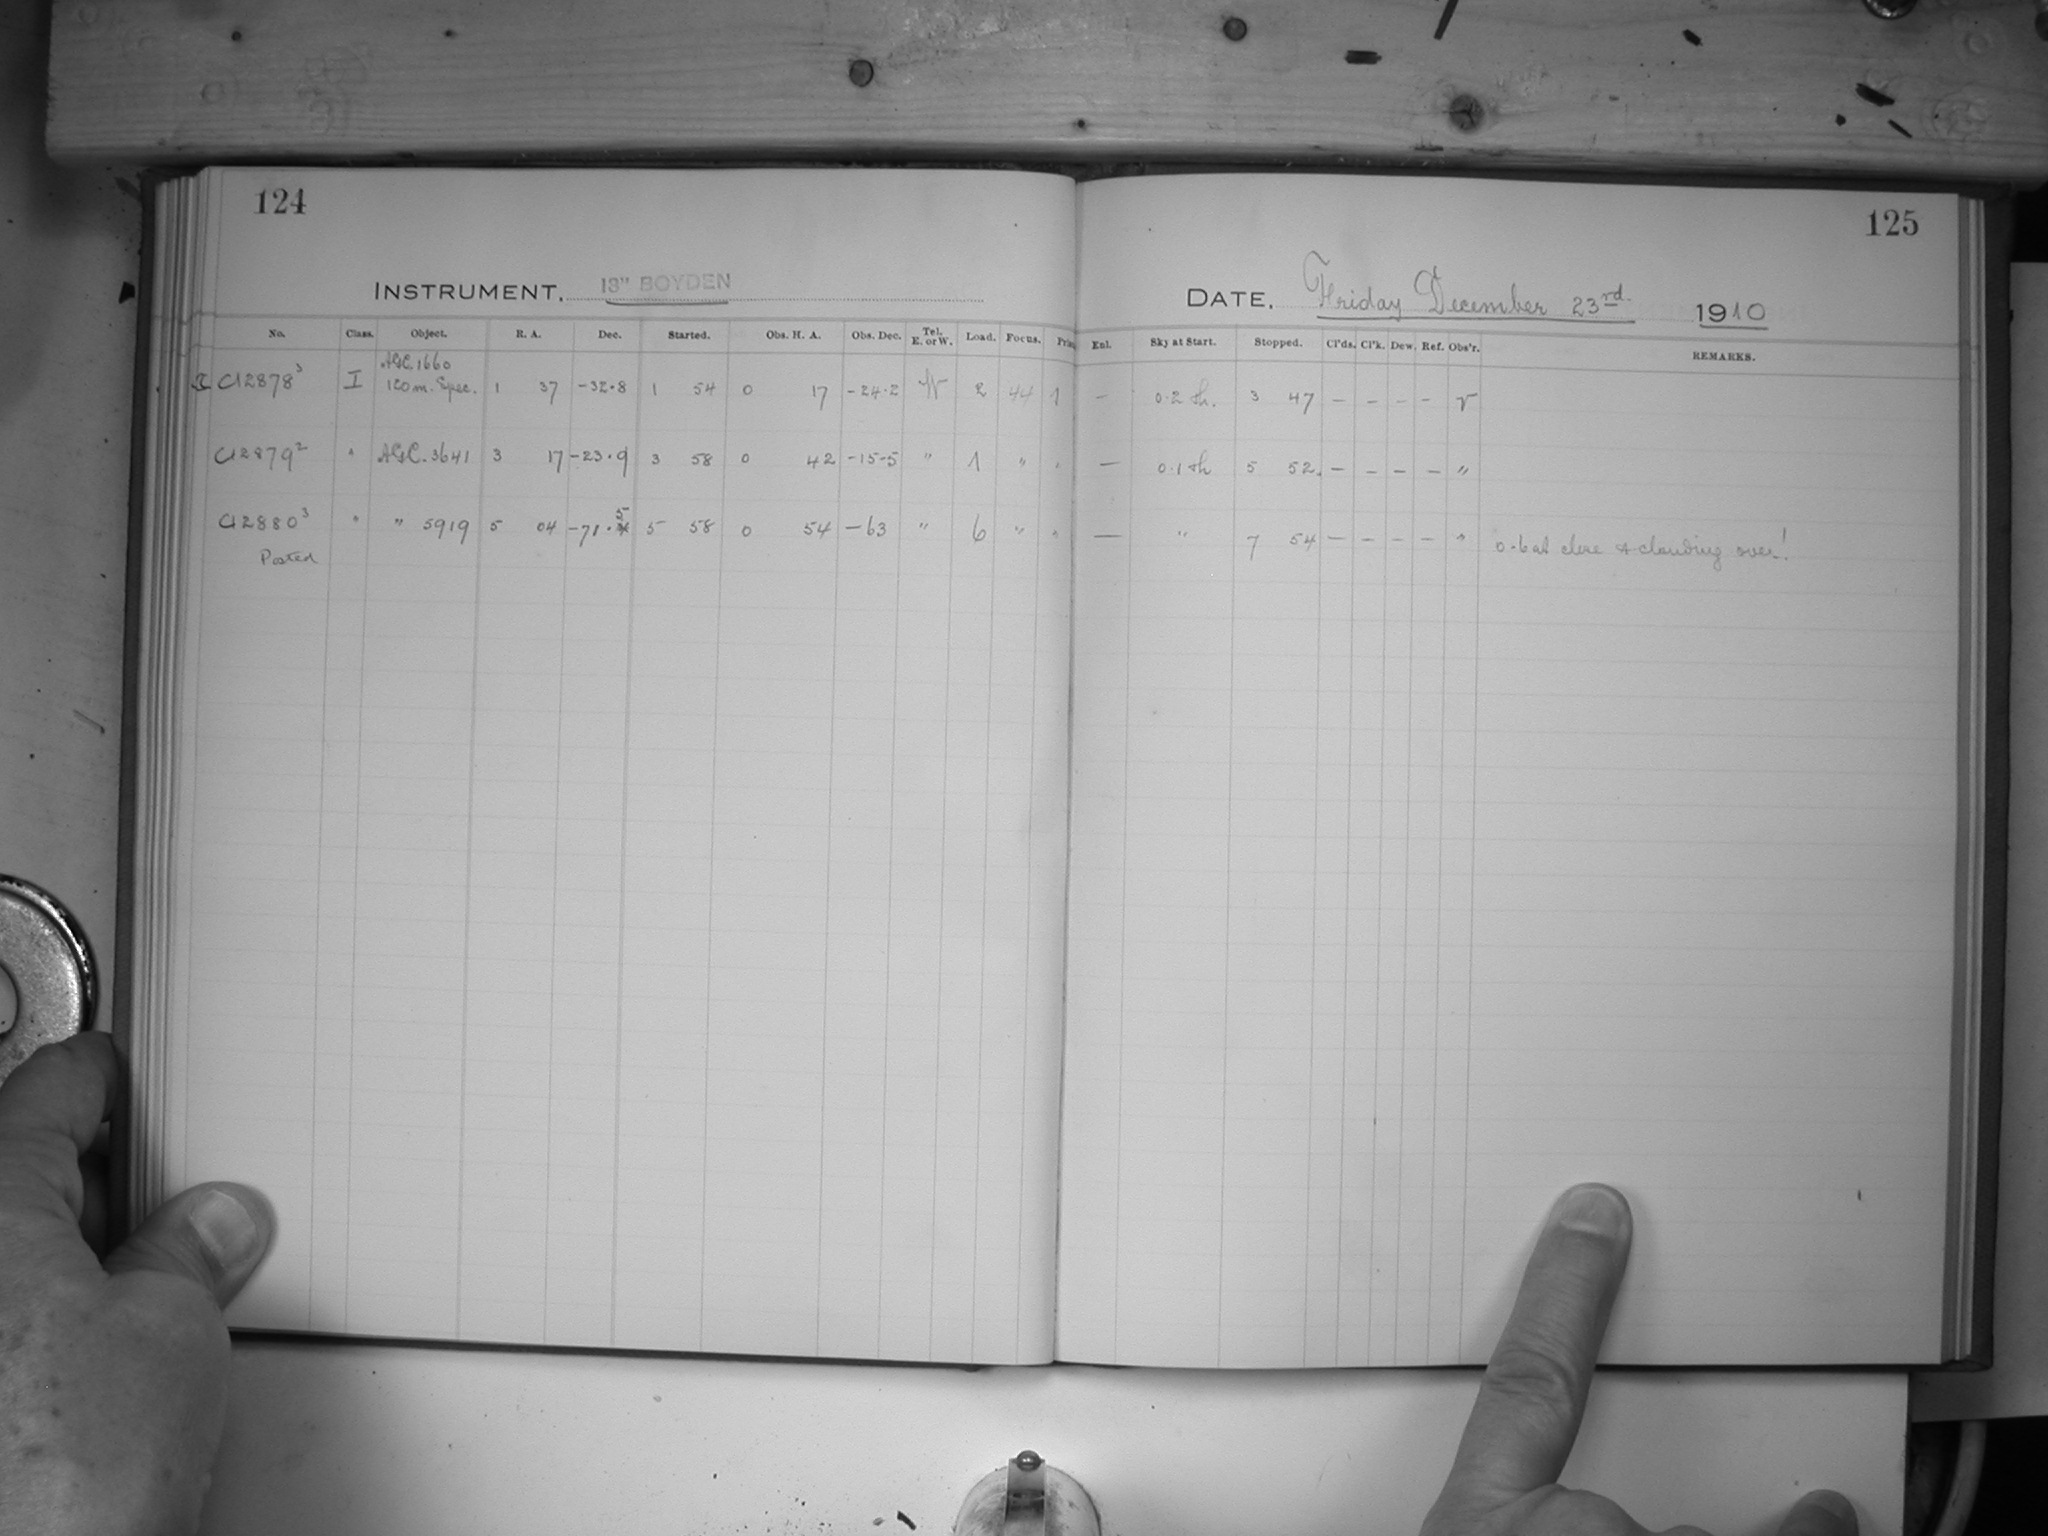 124
125
INSTRUMENT. 13" BOYDEN
DATE. Friday December 23rd. 1910
No. Class. Object. R. A. Dec. Started. Obs. H. A. Obs. Dec. Tel. E. or W. Load. Focus. Enl. Sky at Start. Stopped. Cl'ds. Cl'k. Dew. Ref. Obs'r. REMARKS.
AGC. 1660
C12878³ I 120 m. Spec. 1 37 -32.8 1 54 0 17 -24.2 W 2 44 1 - 0.2 th. 3 47 - - - - V
C12879² " AGC. 3641 3 17 -23.9 3 58 0 42 -15.5 " 1 " " - 0.1 th 5 52. - - - - "
C12880³ " " 5919 5 04 -71.5 5 58 0 54 -63 " 6 " " - " 7 54 - - - - " 0.6 at close & clouding over!
Posted